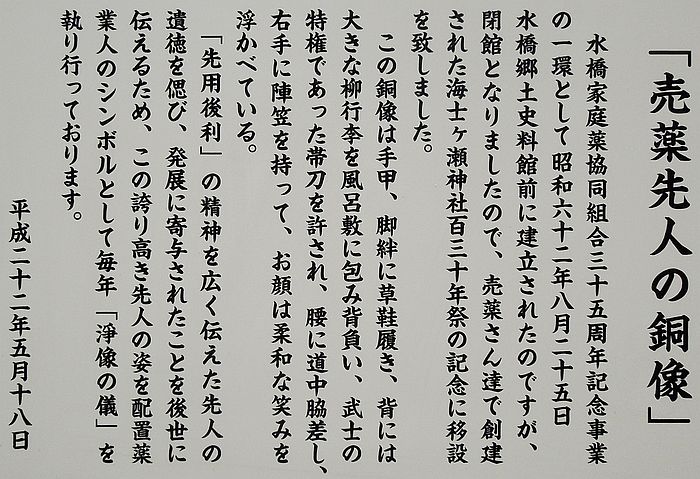 「売薬先人の銅像」
水橋家庭薬協同組合三十五周年記念事業
の一環として昭和六十二年八月二十五日
水橋郷土史料館前に建立されたのですが、
閉館となりましたので、売薬さん達で創建
された海士ヶ瀬神社百三十年祭の記念に移設
を致しました。
この銅像は手甲、脚絆に草鞋履き、背には
大きな柳行李を風呂敷に包み背負い、武士の
特権であった帯刀を許され、腰に道中脇差し、
右手に陣笠を持って、お顔は柔和な笑みを
浮かべている。
「先用後利」の精神を広く伝えた先人の
遺徳を偲び、発展に寄与されたことを後世に
伝えるため、この誇り高き先人の姿を配置薬
業人のシンボルとして毎年「淨像の儀」を
執り行っております。
平成二十二年五月十八日